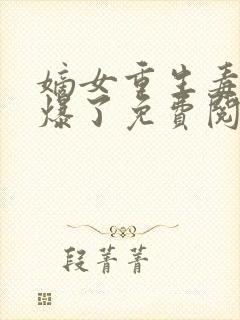 嫡女重生毒
爆了免費閱
段菁菁